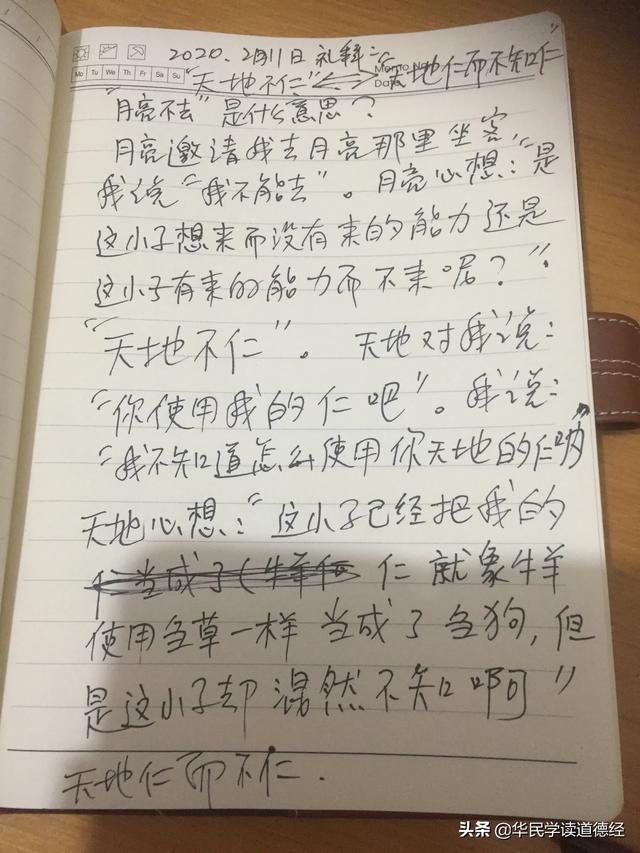 2020.2月11日 礼拜二
Mo Tu We Th Fr Sa Su
Memo No.
"天地不仁"<—>"天地仁而不知仁"
"月亮不去"是什么意思?
月亮邀请我去月亮那里坐客,
我说"我不能去"。月亮心想:"是
这小子想来而没有来的能力还是
这小子有来的能力而不来呢?"
"天地不仁"。天地对我说:
"你使用我的仁吧"。我说:
"我不知道怎么使用你天地的仁哟"
天地心想:"这小子已经把我的
仁就象牛羊
使用刍草一样当成了刍狗,但
是这小子却混然不知啊"
天地仁而不仁.
头条 @华民学读道德经